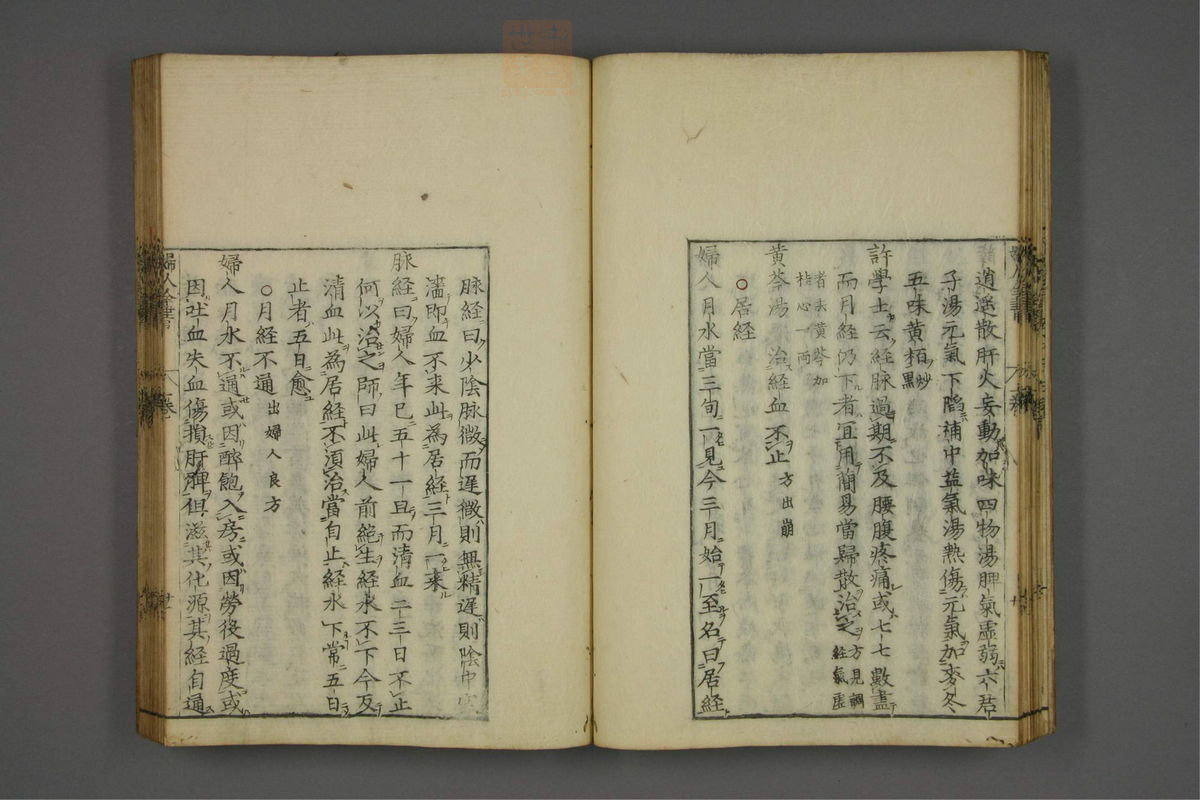 逍遥散肝火妄動加味四物湯脾氣虚弱六君
子湯元氣下陷補中益氣湯熱傷元氣加麥冬
五味黄栢炒黒
許學士云経脉過期不及腰腹疼痛或七七數盡
而月経仍下者宜用簡易當歸散治之方見調経氣虚
者去黄芩加桂心一両
黄芩湯 治経血不止 方出崩
○居経
婦人月水當三旬一見今三月始一至名曰居経
脉経曰少陰脉微而遅微則無精遅則陰中
濇即血不来此為居経三月一来
脈経曰婦人年已五十一旦而清血二三日不止
何以治之師曰此婦人前絶生経水不下今反
清血此為居経不須治當自止経水下常五日
止者五日愈
○月経不通 出婦人良方
婦人月水不通或因醉飽入房或因勞役過度或
因吐血失血傷損肝脾但滋其化源其経自通